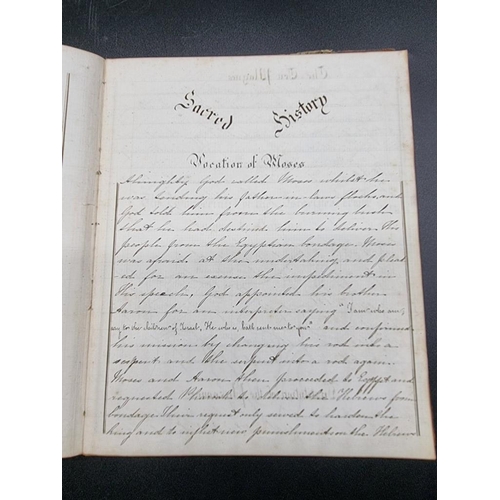 Sacred History
Vocation of Moses
Almighty God called Moses whilst he
was tending his father-in-laws flocks, and
God told him from the burning bush
that he had destined him to deliver His
people from the Egyptian bondage. Moses
was afraid at the undertaking and plead-
ed for an excuse the impediment in
His speech, God appointed his brother
Aaron for an interpreter saying "I am who am,
say to the children of Israel, He who is, hath sent me to you" and confirmed
his mission by changing his rod into a
serpent and the serpent into a rod again.
Moses and Aaron then proceeded to Egypt and
requested Pharaoh to the Hebrews from
bondage. Their request only served to harden the
king and to inflict new punishment on the Hebrew